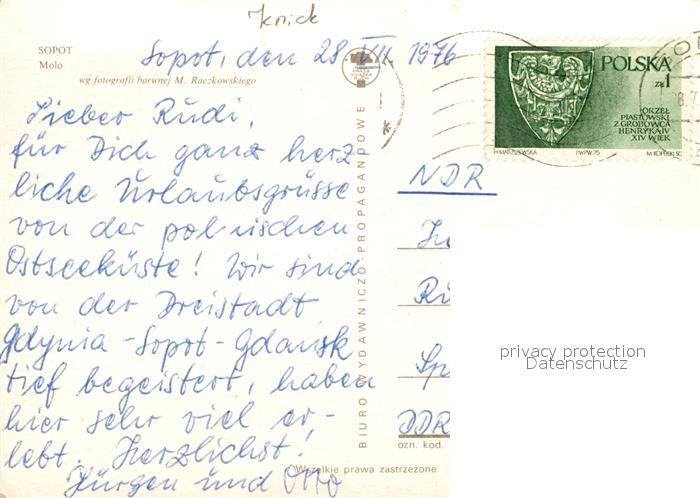 Knick
SOPOT
Molo
wg fotografii barwnej M. Raczkowskiego
Sopot, den 28 VII. 1976
Lieber Rudi,
für Dich ganz herz-
liche Urlaubsgrüsse
von der polnischen
Ostseeküste! Wir sind
von der Dreistadt
Gdynia-Sopot-Gdańsk
tief begeistert, haben
hier sehr viel er-
lebt. Herzlichst!
Jürgen und Otto
BIURO WYDAWNICZO PROPAGANDOWE
POLSKA
zł 1
ORZEŁ
PIASTOWSKI
Z GROBOWCA
HENRYKA IV
XIV WIEK
H. MATUSZEWSKA PWPW.75 M. KOPECKI SC.
NDR
Ri
Sp
DDR
ozn. kod.
Wszelkie prawa zastrzeżone
privacy protection
Datenschutz